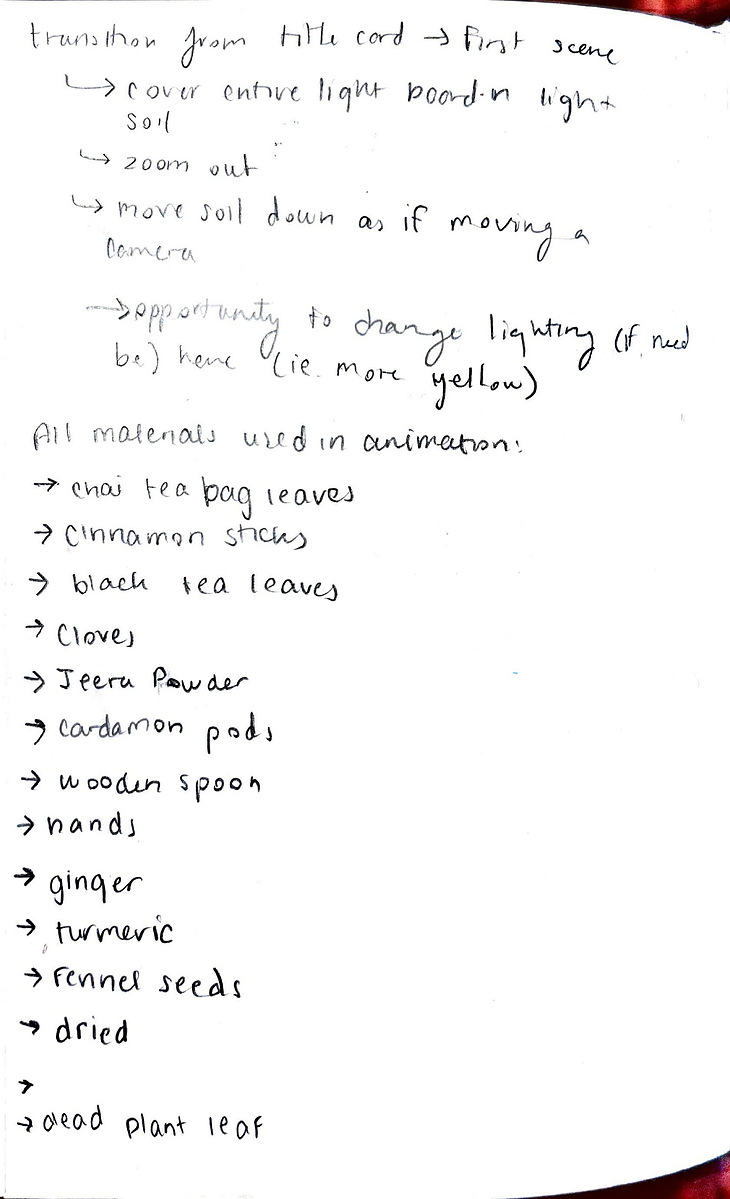 transition from title card → first scene
↳ cover entire light board in light
soil
↳ zoom out
↳ move soil down as if moving a
camera
→ opportunity to change lighting (if need
be) here (ie. more yellow)
All materials used in animation:
→ chai tea bag leaves
→ cinnamon sticks
→ black tea leaves
→ cloves
→ Jeera Powder
→ cardamon pods
→ wooden spoon
→ hands
→ ginger
→ turmeric
→ Fennel seeds
→ dried
→
→ dead plant leaf